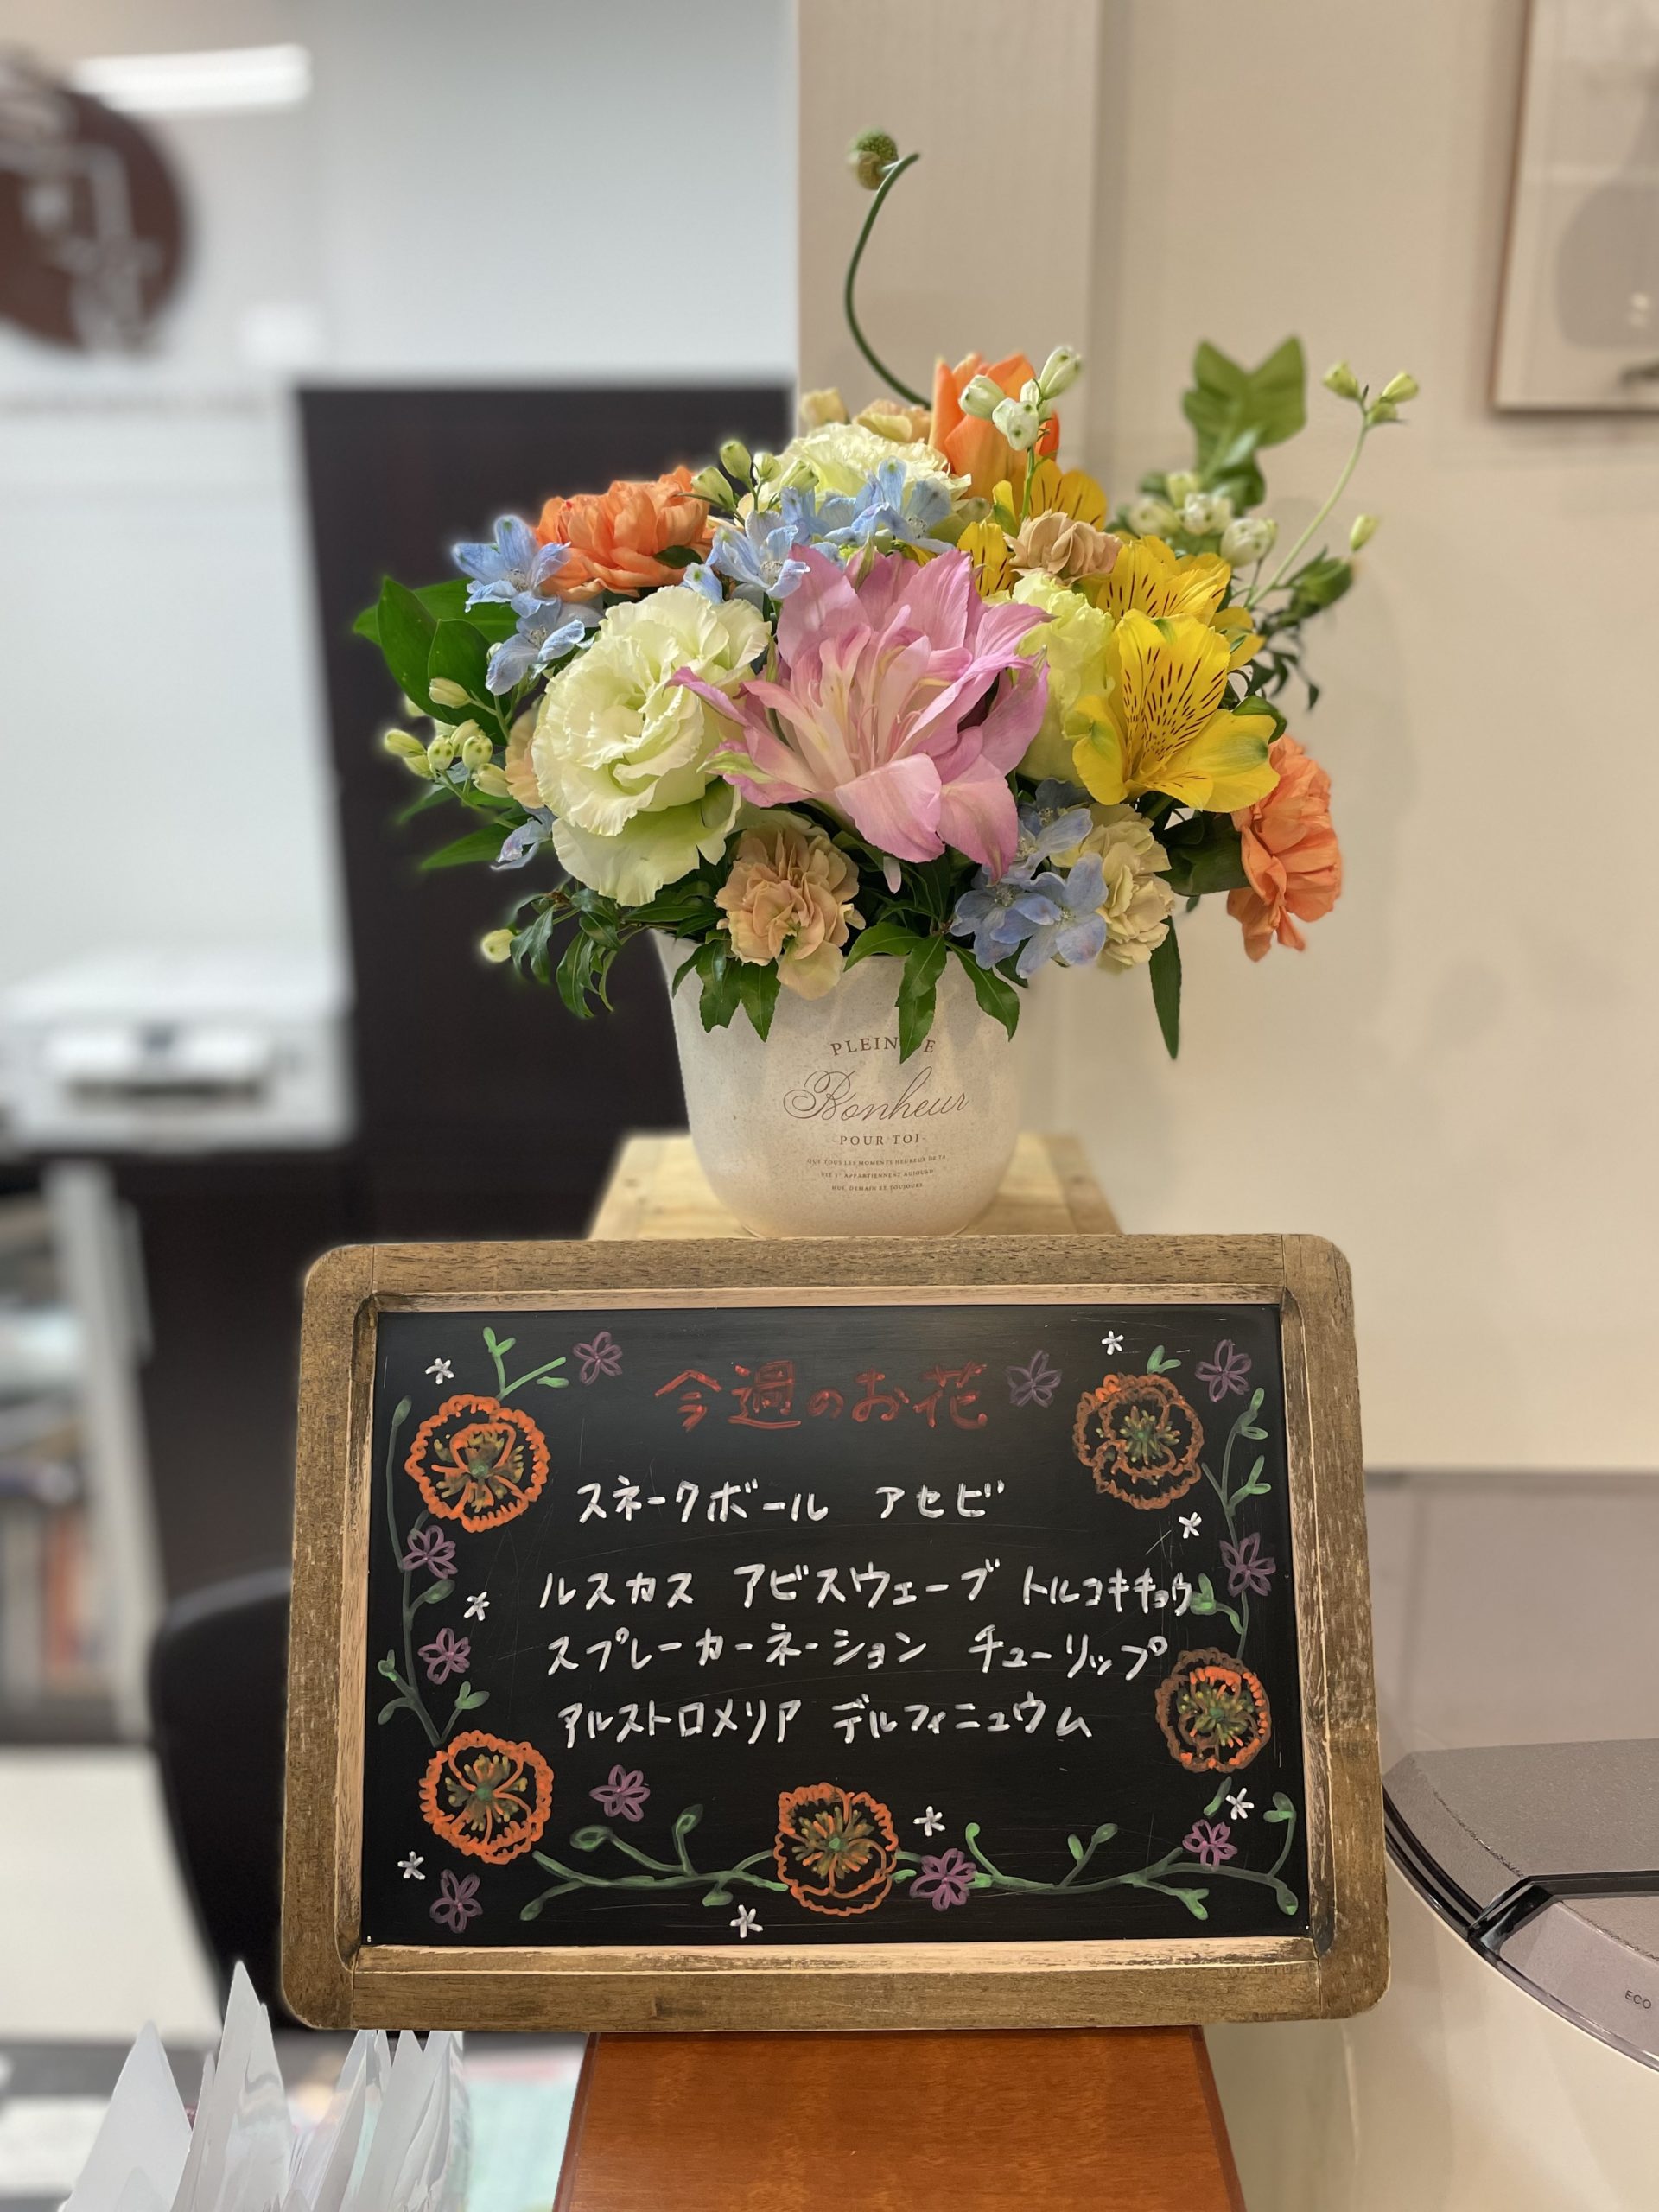 PLEIN DE
Bonheur
-POUR TOI-
QUE TOUS LES MOMENTS HEUREUX DE TA
VIE T'APPARTIENNENT AUJOURD'
HUI, DEMAIN ET TOUJOURS
今週のお花
スネークボール アセビ
ルスカス アビスウェーブ トルコキキョウ
スプレーカーネーション チューリップ
アルストロメリア デルフィニュウム
ECO